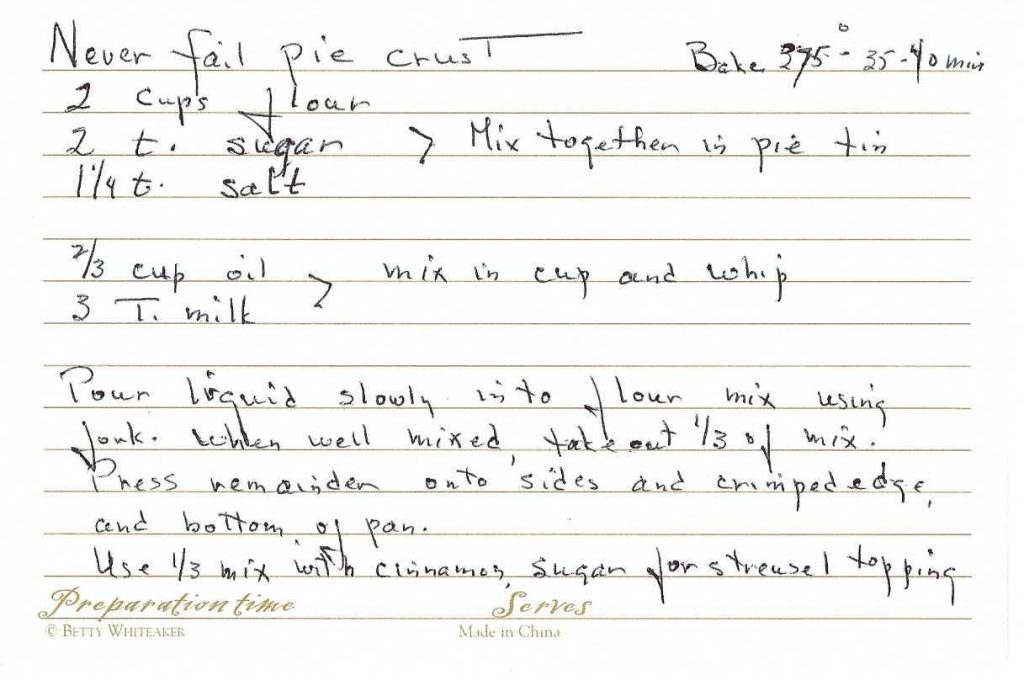 Never fail pie crust
Bake 375° - 35-40 min
2 cups flour
2 t. sugar > Mix together in pie tin
1 1/4 t. salt
2/3 cup oil > mix in cup and whip
3 T. milk
Pour liquid slowly into flour mix using
fork. When well mixed, take out 1/3 of mix.
Press remainder onto sides and crimped edge,
and bottom of pan.
Use 1/3 mix with cinnamon, sugar for streusel topping
Preparation time Serves
© BETTY WHITEAKER Made in China